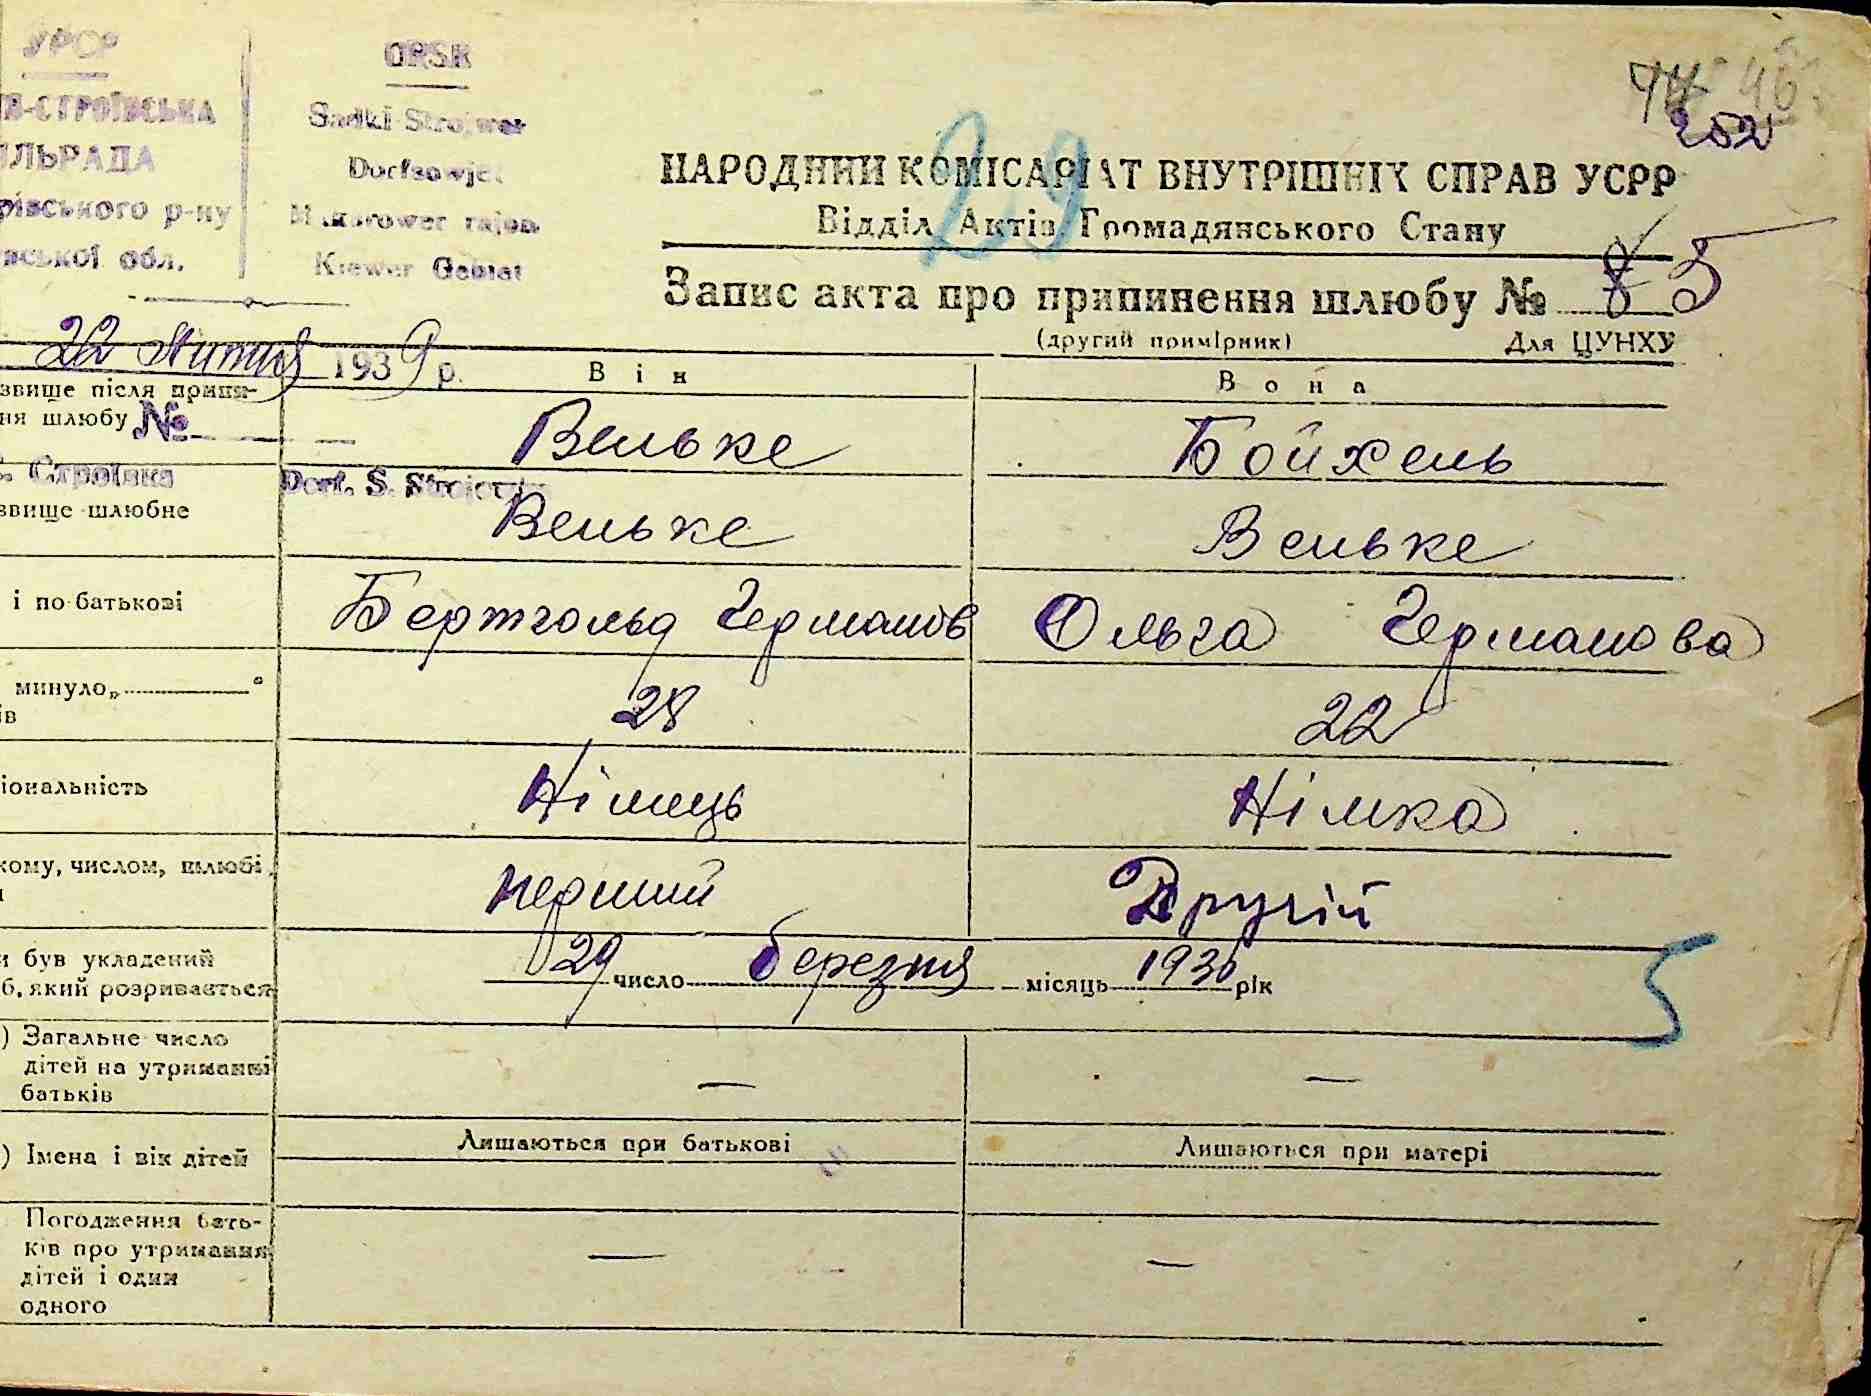 УРСР
СТРОЇВСЬКА
ІЛЬРАДА
рівського р-ну
вської обл.
URSR
Sadki-Strojwer
Dorfsowjet
Makarower rajon
Kiewer Gebiet
44 46
252
29
НАРОДНИЙ КОМІСАРІАТ ВНУТРІШНІХ СПРАВ УСРР
Відділ Актів Громадянського Стану
Запис акта про припинення шлюбу № 8 5
(другий примірник) Для ЦУНХУ
22 лютия 1939 р.
Він Вона
звище після припи-
ня шлюбу Вельке Бойхель
№
с. Строївка Dorf. S. Strojewka
звище шлюбне Вельке Вельке
і по-батькові Бертгольд Германов Ольга Германова
минуло „ “
ів 28 22
іональність Німець Німка
кому, числом, шлюбі перший Другій
и був укладений
б, який розривається 29 число березня місяць 1936 рік
5
) Загальне число
дітей на утриманні
батьків — —
) Імена і вік дітей Лишаються при батькові Лишаються при матері
Погодження бать-
ків про утримання
дітей і один
одного — —